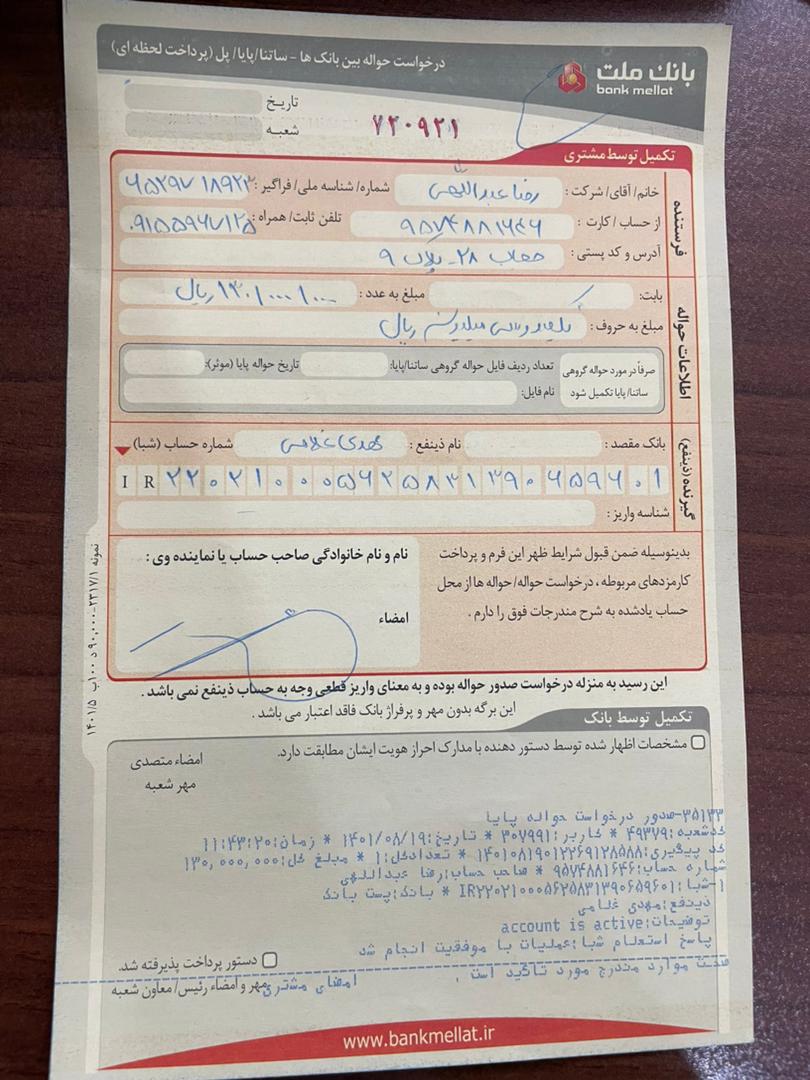 درخواست حواله بین بانک ها - ساتنا/پایا/پل (پرداخت لحظه ای)
بانک ملت
bank mellat
تاریخ
شعبه
۷۲۰۹۲۱
تکمیل توسط مشتری
فرستنده
خانم/آقای/شرکت: رضا عبداللهی شماره/شناسه ملی/فراگیر:
از حساب/کارت: ۹۵۷۴۸۸۱۶۴۶ تلفن ثابت/همراه: ۰۹۱۵۵۹۶۷۱۲۵
آدرس و کد پستی: ۲۸ - پلاک ۹
اطلاعات حواله
بابت: مبلغ به عدد: ۱۳۰/۰۰۰/۰۰۰ ریال
مبلغ به حروف: یکصد و سی میلیون ریال
صرفاً در مورد حواله گروهی ساتنا/پایا تکمیل شود
تعداد ردیف فایل حواله گروهی ساتنا/پایا: تاریخ حواله پایا (موثر):
نام فایل:
گیرنده (ذینفع)
بانک مقصد: نام ذینفع: مهدی غلامی شماره حساب (شبا)
IR ۲۲۰۲۱۰۰۰۵۶۲۵۸۳۱۳۹۰۶۵۹۶۰۱
شناسه واریز:
بدینوسیله ضمن قبول شرایط ظهر این فرم و پرداخت
کارمزدهای مربوطه، درخواست حواله/حواله ها از محل
حساب یادشده به شرح مندرجات فوق را دارم.
نام و نام خانوادگی صاحب حساب یا نماینده وی:
امضاء
این رسید به منزله درخواست صدور حواله بوده و به معنای واریز قطعی وجه به حساب ذینفع نمی باشد.
این برگه بدون مهر و پرفراژ بانک فاقد اعتبار می باشد.
تکمیل توسط بانک
مشخصات اظهار شده توسط دستور دهنده با مدارک احراز هویت ایشان مطابقت دارد.
امضاء متصدی
مهر شعبه
۳۵۱۳۳-صدور درخواست حواله پایا
کدشعبه:۴۹۳۷۹ * کاربر:۳۰۷۹۹۱ * تاریخ:۱۴۰۱/۰۸/۱۹ * زمان:۱۱:۴۳:۲۰
کد پیگیری:۱۴۰۱۰۸۱۹۰۱۲۲۶۹۱۲۸۵۸۸ * تعدادکل:۱ * مبلغ کل:۱۳۰,۰۰۰,۰۰۰
شماره حساب:۹۵۷۴۸۸۱۶۴۶ * صاحب حساب:رضا عبداللهی
۱-شبا:IR۲۲۰۲۱۰۰۰۵۶۲۵۸۳۱۳۹۰۶۵۹۶۰۱ * بانک:پست بانک
ذینفع:مهدی غلامی
توضیحات:account is active
پاسخ استعلام شبا:عملیات با موفقیت انجام شد
صحت موارد مندرج مورد تائید است.
امضای مشتری
دستور پرداخت پذیرفته شد.
مهر و امضاء رئیس/معاون شعبه
www.bankmellat.ir
نمونه ۲۳۱۷/۱-۹۰,۰۰۰ د ۱۰۰ب ۱۴۰۱/۵